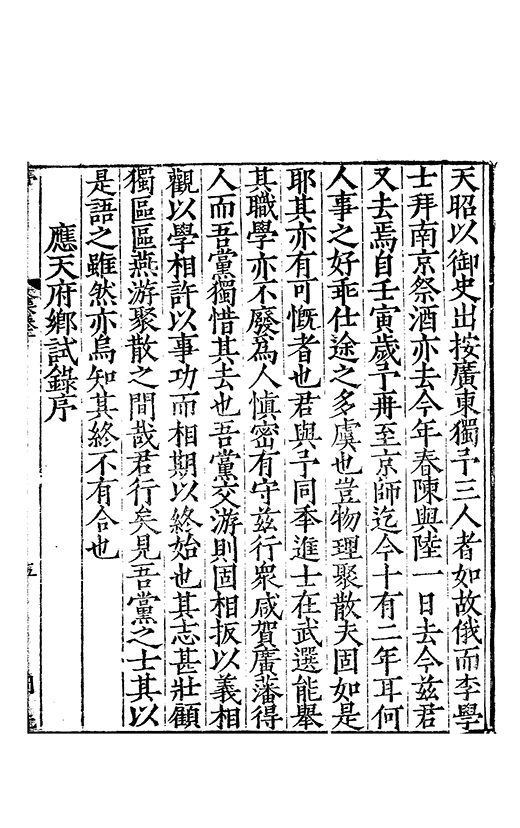 天昭以御史出按廣東獨予三人者如故俄而李學
士拜南京祭酒亦去今年春陳與陸一日去今兹君
又去焉自壬寅歲予再至京師迄今十有二年耳何
人事之好乖仕途之多虞也豈物理聚散夫固如是
耶其亦有可慨者也君與予同年進士在武選能舉
其職學亦不廢為人慎密有守兹行衆咸賀廣藩得
人而吾黨獨惜其去也吾黨交游則固相扳以義相
觀以學相許以事功而相期以終始也其志甚壯顧
獨區區燕游聚散之間哉君行矣見吾黨之士其以
是語之雖然亦烏知其終不有合也
應天府鄉試錄序
五